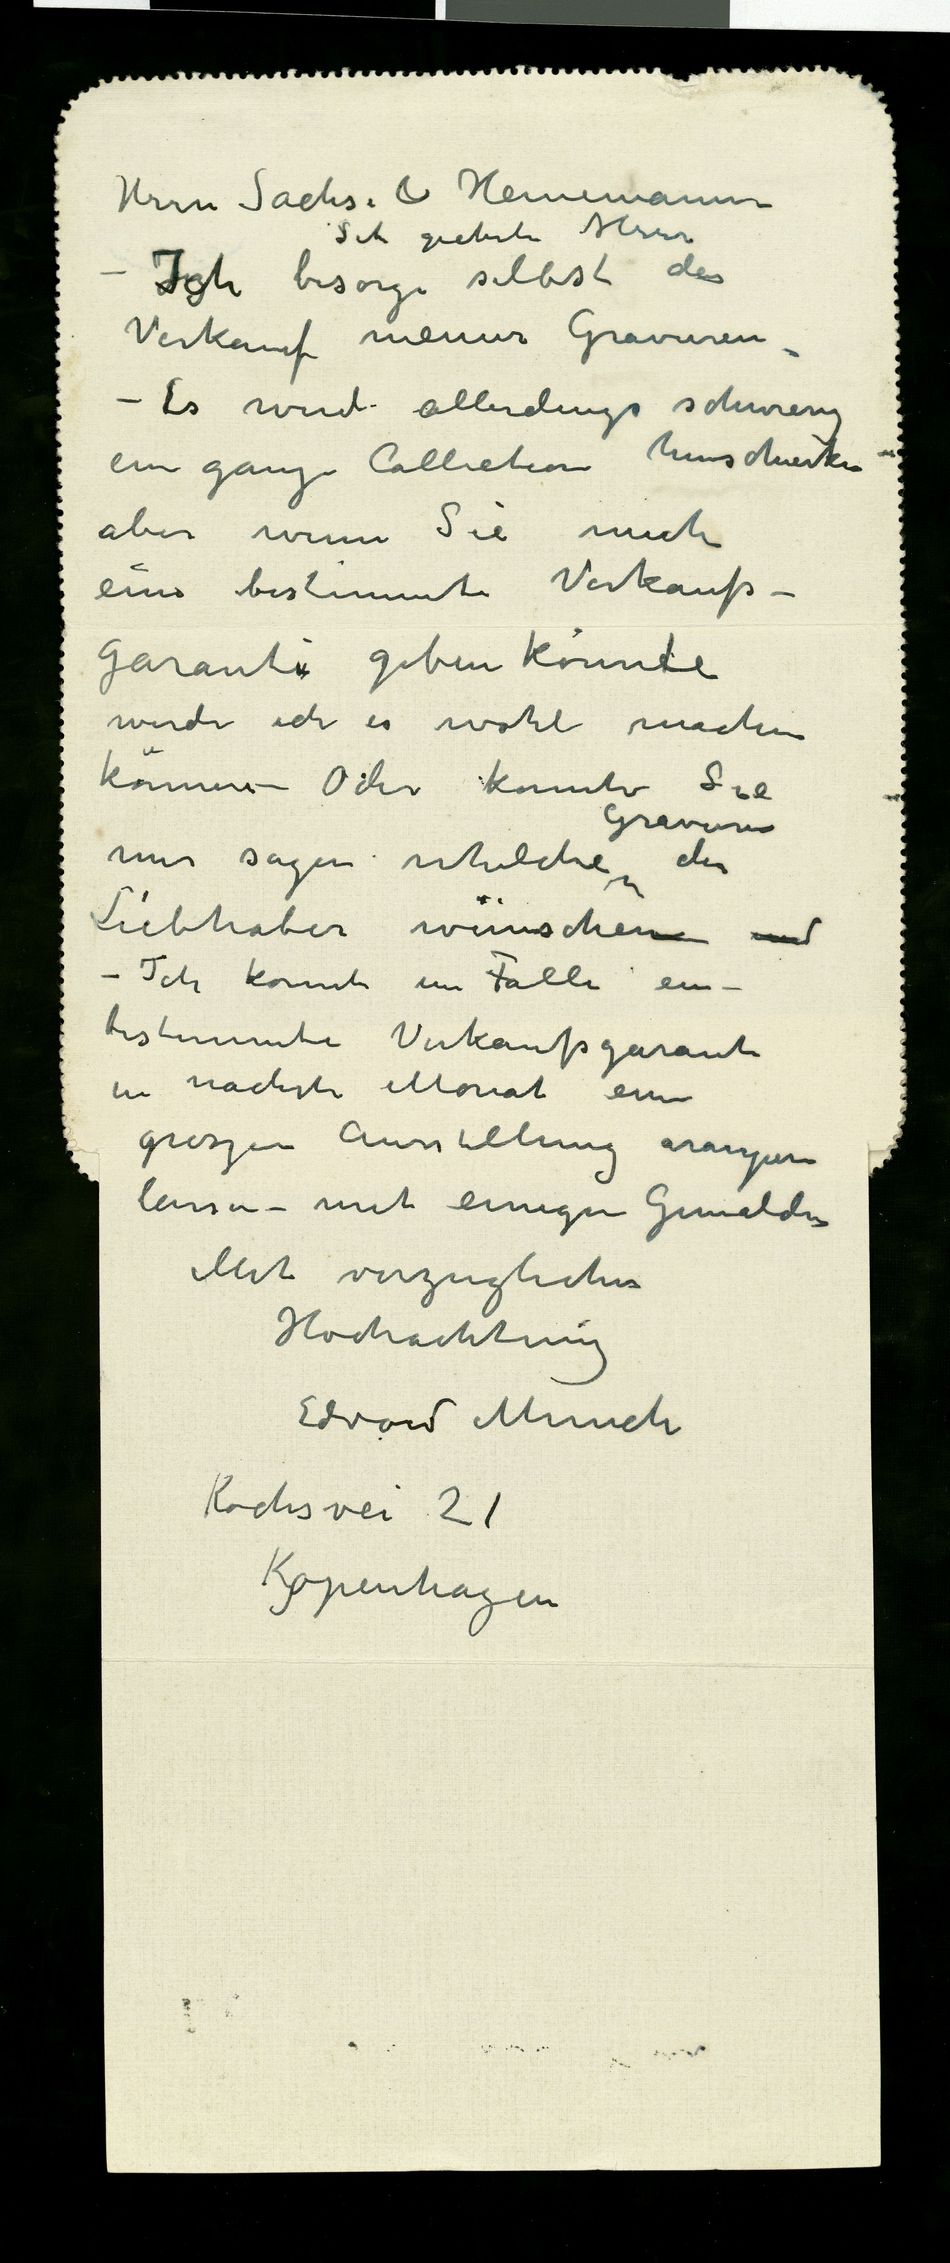 Herrn Sachse & Heinemann
Seh geehrte Herrn
– Ich besorge selbst des
Verkauf meiner Gravuren –
– Es wird allerdings schwierig
ein ganze Collection
aber wenn Sie mich
eine bestimmte Verkaufs –
garanti geben könnte
werde ich es wohl machen
können – Oder konnte Sie
Gravuren
mir sagen whelche der
Liebhaber wünschen und
– Ich konnte im Falle ein –
bestimmte Verkaufsgarante
in nachste Monat eine
groszen Ausstellung arangieren
lassen – mit einigen Gemalden
Mit vorzuglicher
Hochachtung
Edvard Munch
Kochsvei 21
Kopenhagen